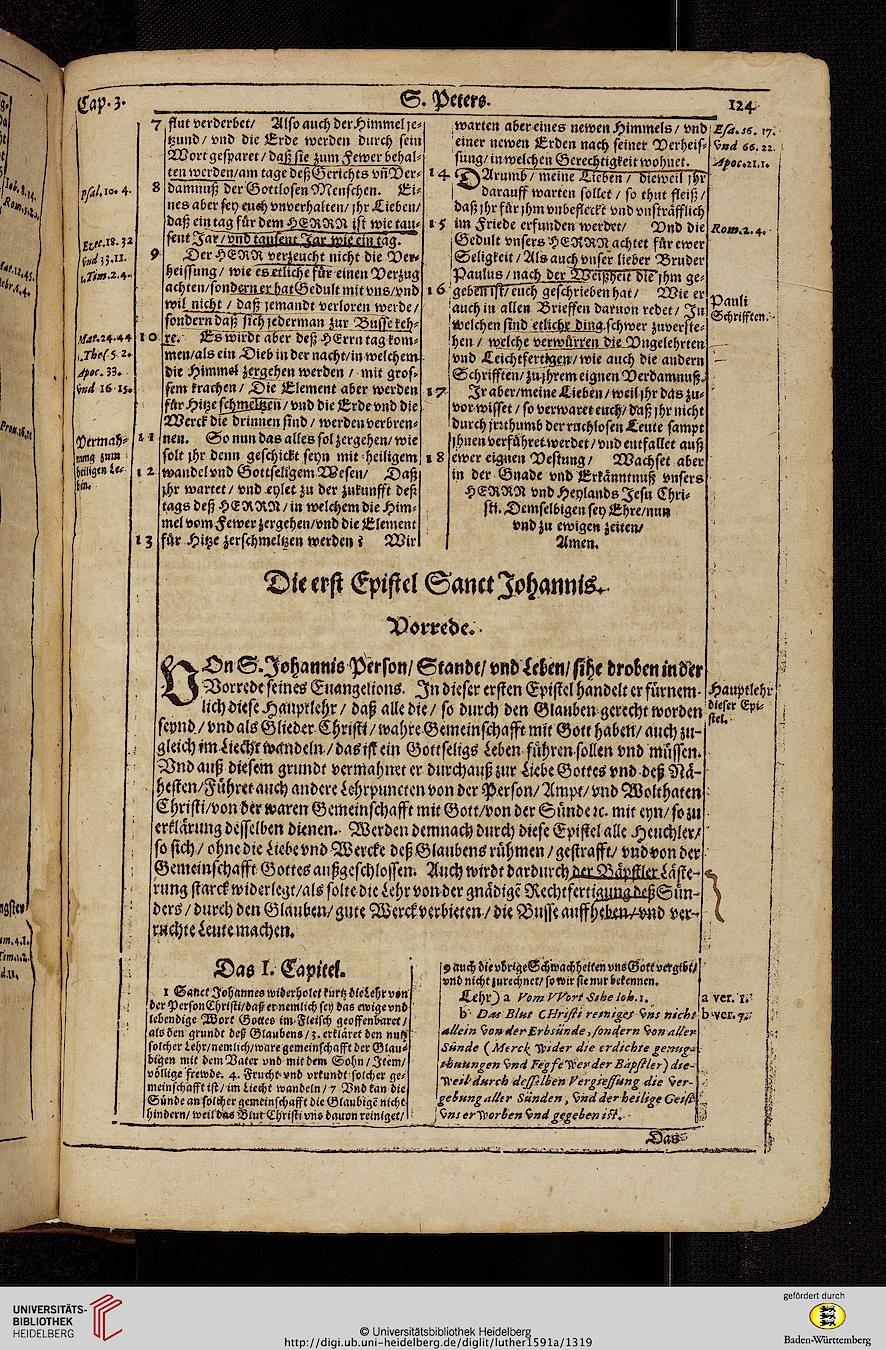 Cap. 3.
S. Peters.
124
7 flut verderbet/ Also auch der Himmel je-
tzund / vnd die Erde werden durch sein
Wort gesparet / daß sie zum Fewer behal-
ten werden/am tage deß Gerichts vñ Ver-
8 damnuß der Gottlosen Menschen. Ei-
nes aber sey euch vnverhalten/ jhr Lieben/
daß ein tag für dem HERRN ist wie tau-
sent Jar / vnd tausent Jar wie ein tag.
9 Der HERR verzeucht nicht die Ver-
heissung / wie es etliche für einen Verzug
achten/sondern er hat Gedult mit vns/vnd
wil nicht / daß jemandt verloren werde /
sondern daß sich jederman zur Busse keh-
10 re. Es wirdt aber deß HErrn tag kom-
men/als ein Dieb in der nacht/in welchem
die Himmel zergehen werden / mit gros-
sem krachen / Die Element aber werden
für Hitze schmeltzen / vnd die Erde vnd die
Werck die drinnen sind / werden verbren-
11 nen. So nun das alles sol zergehen/ wie
solt jhr denn geschickt seyn mit heiligem
12 wandel vnd Gottseligem Wesen/ Daß
jhr wartet / vnd eylet zu der zukunfft deß
tags deß HERRN / in welchem die Him-
mel vom Fewer zergehen/vnd die Element
13 für Hitze zerschmeltzen werden? Wir
Psal. 10. 4.
Ezec. 18. 32
vnd 33. 11.
1. Tim. 2. 4.
Mat. 24. 44
1. Thes. 5. 2.
Apoc. 33.
vnd 16. 15.
Vermah-
nung zum
heiligen Le-
ben.
warten aber eines newen Himmels / vnd
einer newen Erden nach seiner Verheis-
sung/ in welchen Gerechtigkeit wohnet.
14 DArumb / meine Lieben / dieweil jhr
darauff warten sollet / so thut fleiß /
daß jhr für jhm vnbefleckt vnd vnsträfflich
15 im Friede erfunden werdet/ Vnd die
Gedult vnsers HERRN achtet für ewer
Seligkeit / Als auch vnser lieber Bruder
Paulus / nach der Weißheit die jhm ge-
16 geben ist/ euch geschrieben hat / Wie er
auch in allen Brieffen daruon redet / In
welchen sind etliche ding schwer zuverste-
hen / welche verwürren die Vngelehrten
vnd Leichtfertigen / wie auch die andern
Schrifften/ zu jhrem eignen Verdamnuß.
17 Jr aber/meine Lieben / weil jhr das zu-
vor wisset / so verwaret euch/ daß jhr nicht
durch jrrthumb der ruchlosen Leute sampt
jhnen verführet werdet / vnd entfallet auß
18 ewer eignen Vestung / Wachset aber
in der Gnade vnd Erkänntnuß vnsers
HERRN vnd Heylands Jesu Chri-
sti. Demselbigen sey Ehre/nun
vnd zu ewigen zeiten/
Amen.
Esa. 16. 17.
vnd 66. 22.
Apoc. 21. 1.
Rom. 2. 4.
Pauli
Schrifften.
Die erst Epistel Sanct Johannis.
Vorrede.
VOn S. Johannis Person/ Standt/ vnd Leben/ sihe droben in der
Vorrede seines Euangelions. In dieser ersten Epistel handelt er fürnem-
lich diese Hauptlehr / daß alle die / so durch den Glauben gerecht worden
seynd / vnd als Glieder Christi / wahre Gemeinschafft mit Gott haben/ auch zu-
gleich im Liecht wandeln / das ist ein Gottseligs Leben führen sollen vnd müssen.
Vnd auß diesem grundt vermahnet er durchauß zur Liebe Gottes vnd deß Nä-
hesten/Führet auch andere Lehrpuncten von der Person/ Ampt/ vnd Wolthaten
Christi/von der waren Gemeinschafft mit Gott/von der Sünde ꝛc. mit eyn/ so zu
erklärung desselben dienen. Werden demnach durch diese Epistel alle Heuchler/
so sich / ohne die Liebe vnd Wercke deß Glaubens rühmen / gestrafft/ vnd von der
Gemeinschafft Gottes außgeschlossen. Auch wirdt dardurch der Bäpstler Läste-
rung starck widerlegt/als solte die Lehr von der gnädigē Rechtfertigung deß Sün-
ders / durch den Glauben/ gute Werck verbieten / die Busse auffheben / vnd ver-
ruchte Leute machen.
Hauptlehr
dieser Epi-
stel.
Das I. Capitel.
1 Sanct Johannes widerholet kurtz die Lehr von
der Person Christi/daß er nemlich sey das ewige vnd
lebendige Wort Gottes im Fleisch geoffenbaret /
als den grundt deß Glaubens / 3. erkläret den nutz
solcher Lehr/nemlich/ware gemeinschafft der Glau-
bigen mit dem Vater vnd mit dem Sohn / Item/
völlige frewde. 4. Frucht vnd vrkundt solcher ge-
meinschafft ist / im Liecht wandeln / 7 Vnd kan die
Sünde an solcher gemeinschafft die Glaubigē nicht
hindern/ weil das Blut Christi vns dauon reiniget/
9 auch die vbrige Schwachheiten vns Gott vergibt/
vnd nicht zurechnet/ so wir sie nur bekennen.
Lehr) a Vom VVort Sihe Ioh. 1.
b Das Blut CHristi reiniget vns nicht
allein von der Erbsünde, sondern von aller
Sünde (Merck wider die erdichte genug-
thuungen vnd Fegfewer der Bäpstler) die-
weil durch desselben Vergiessung die ver-
gebung aller Sünden, vnd der heilige Geist
vns erworben vnd gegeben ist.
a ver. 1.
b ver. 7.
Das
UNIVERSITÄTS-
BIBLIOTHEK
HEIDELBERG
© Universitätsbibliothek Heidelberg
http://digi.ub.uni-heidelberg.de/diglit/luther1591a/1319
gefördert durch
Baden-Württemberg